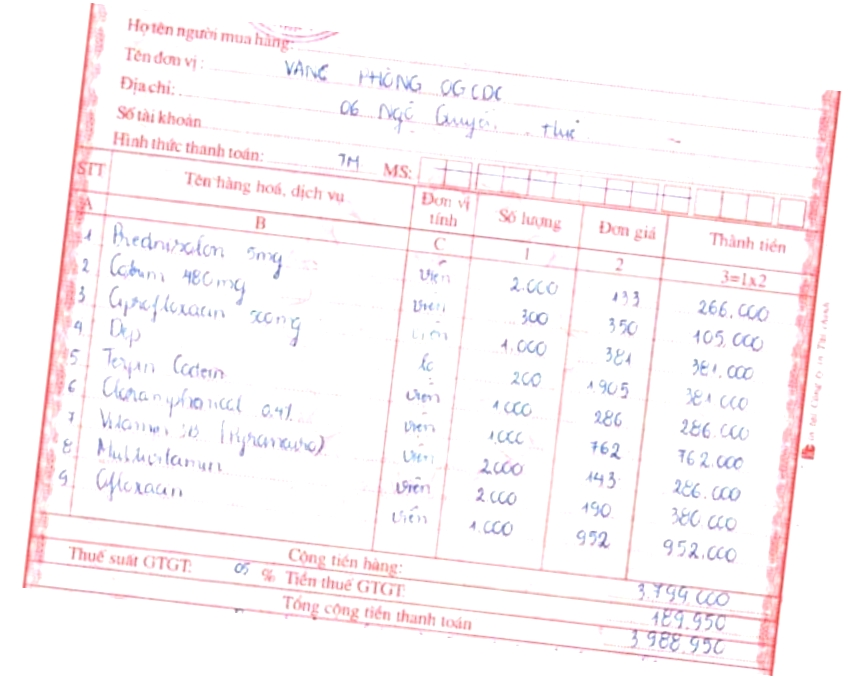 Họ tên người mua hàng:
Tên đơn vị: VĂNG PHÒNG OGCDC
Địa chỉ: 06 Ngô Quyền, Huế
Số tài khoản
Hình thức thanh toán: TM MS:
STT Tên hàng hoá, dịch vụ Đơn vị tính Số lượng Đơn giá Thành tiền
A B C 1 2 3=1x2
1 Prednisalon 5mg viên 2.000 133 266.000
2 480mg viên 300 350 105.000
3 500mg viên 1.000 381 381.000
4 Dep lọ 200 1905 381.000
5 Terpin Codein viên 1000 286 286.000
6 0.4% viên 1.000 762 762.000
7 viên 2000 143 286.000
8 Multivitamin viên 2000 190 380.000
9 viên 1.000 952 952.000
Cộng tiền hàng: 3.799.000
Thuế suất GTGT: 05 % Tiền thuế GTGT: 189.950
Tổng cộng tiền thanh toán 3.988.950